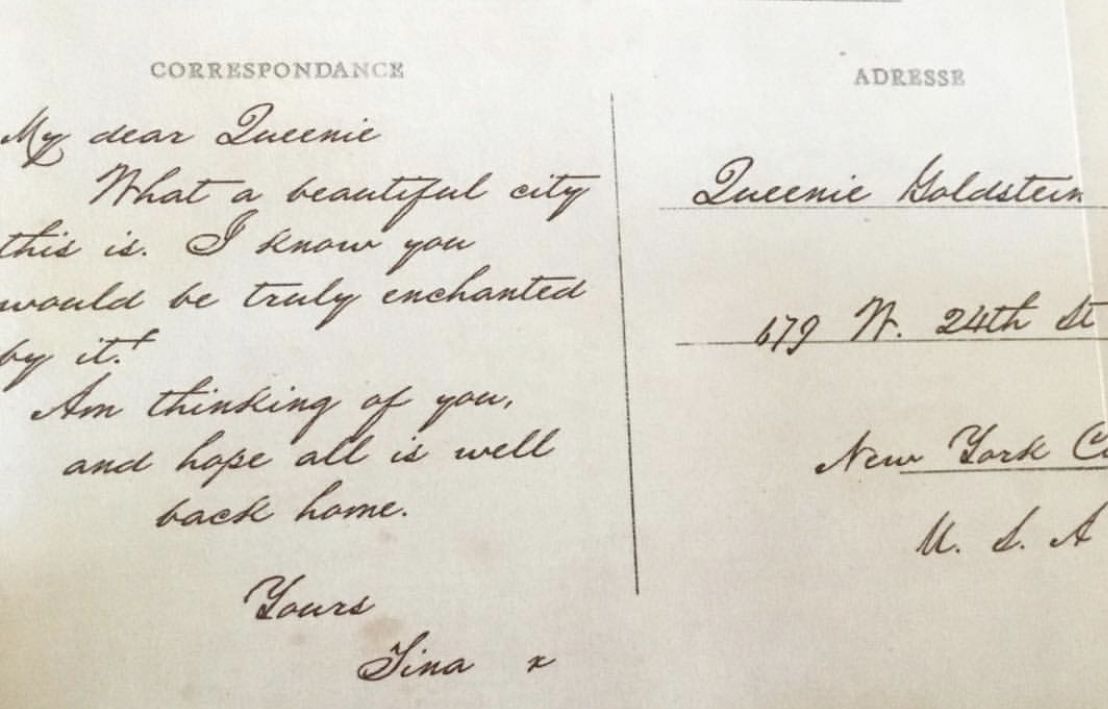 CORRESPONDANCE
My dear Queenie
What a beautiful city
this is. I know you
would be truly enchanted
by it!
Am thinking of you,
and hope all is well
back home.
Yours
Tina x
ADRESSE
Queenie Goldstein
679 W. 24th St
New York
U. S. A